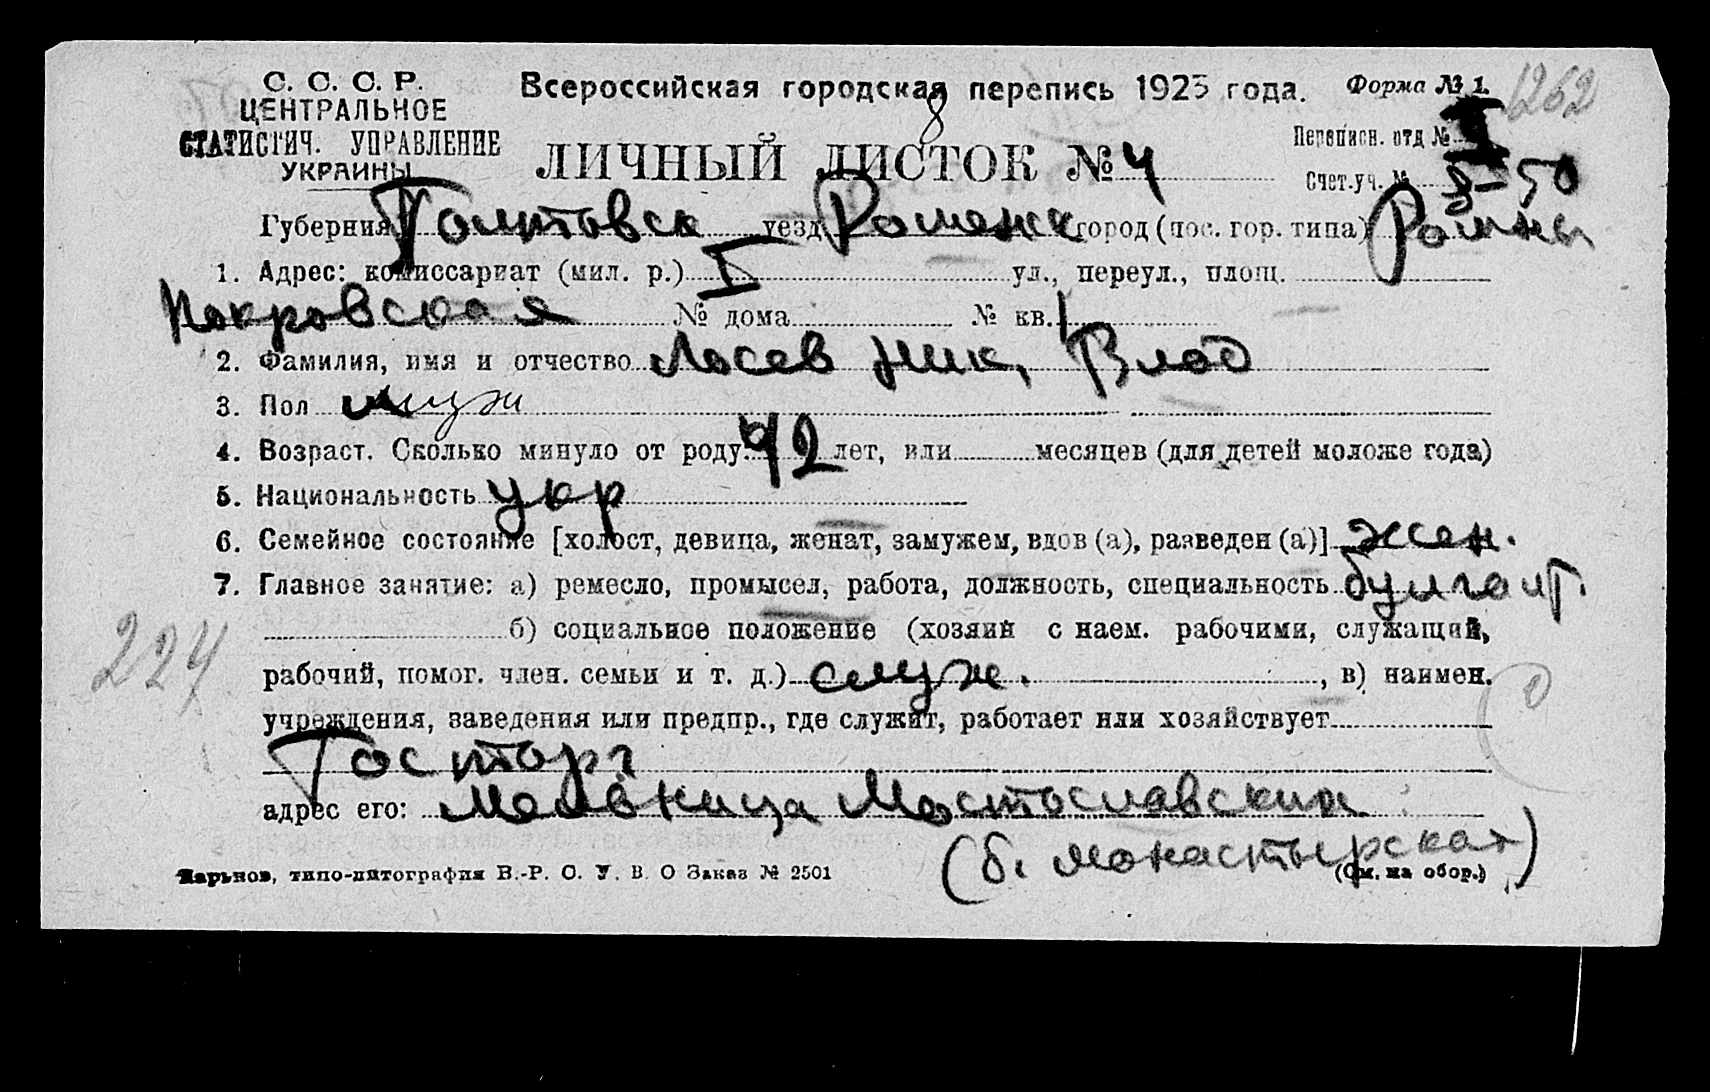 С. С. С. Р.
ЦЕНТРАЛЬНОЕ
СТАТИСТИЧ. УПРАВЛЕНИЕ
УКРАИНЫ
Всероссийская городская перепись 1923 года.
Форма № 1.
1262
ЛИЧНЫЙ ЛИСТОК № 4
8
Переписн. отд № I
Счет.уч. № 8-50
Губерния Полтовск уезд Роменск город (пос. гор. типа) Ромны
1. Адрес: комиссариат (мил. р.) I ул., переул., площ.
Покровская № дома № кв. 1
2. Фамилия, имя и отчество Лосев Ник, Влад
3. Пол муж
4. Возраст. Сколько минуло от роду: 42 лет, или месяцев (для детей моложе года)
5. Национальность укр
6. Семейное состояние [холост, девица, женат, замужем, вдов (а), разведен (а)] жен.
7. Главное занятие: а) ремесло, промысел, работа, должность, специальность булгалт.
б) социальное положение (хозяин с наем. рабочими, служащий,
224
рабочий, помог. член. семьи и т. д.) служ. , в) наимен.
0
учреждения, заведения или предпр., где служит, работает или хозяйствует
Госторг
адрес его:
(б. монастырская)
Харьков, типо-литография В.-Р. О. У. В. О Заказ № 2501
(См. на обор.)